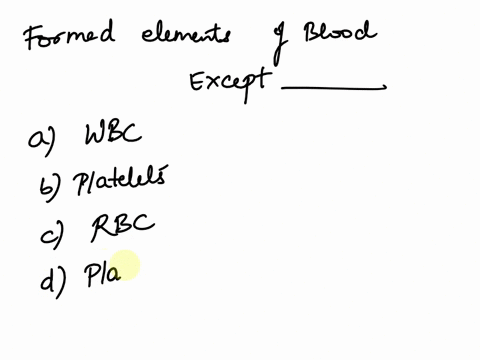 Formed elements of Blood
Except ______
a) WBC
b) Platelets
c) RBC
d) Pla